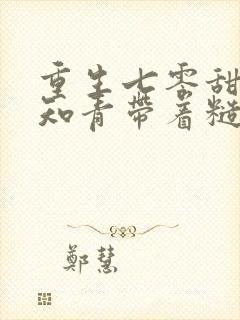 重生七零甜
知青带着糙
鄭慧